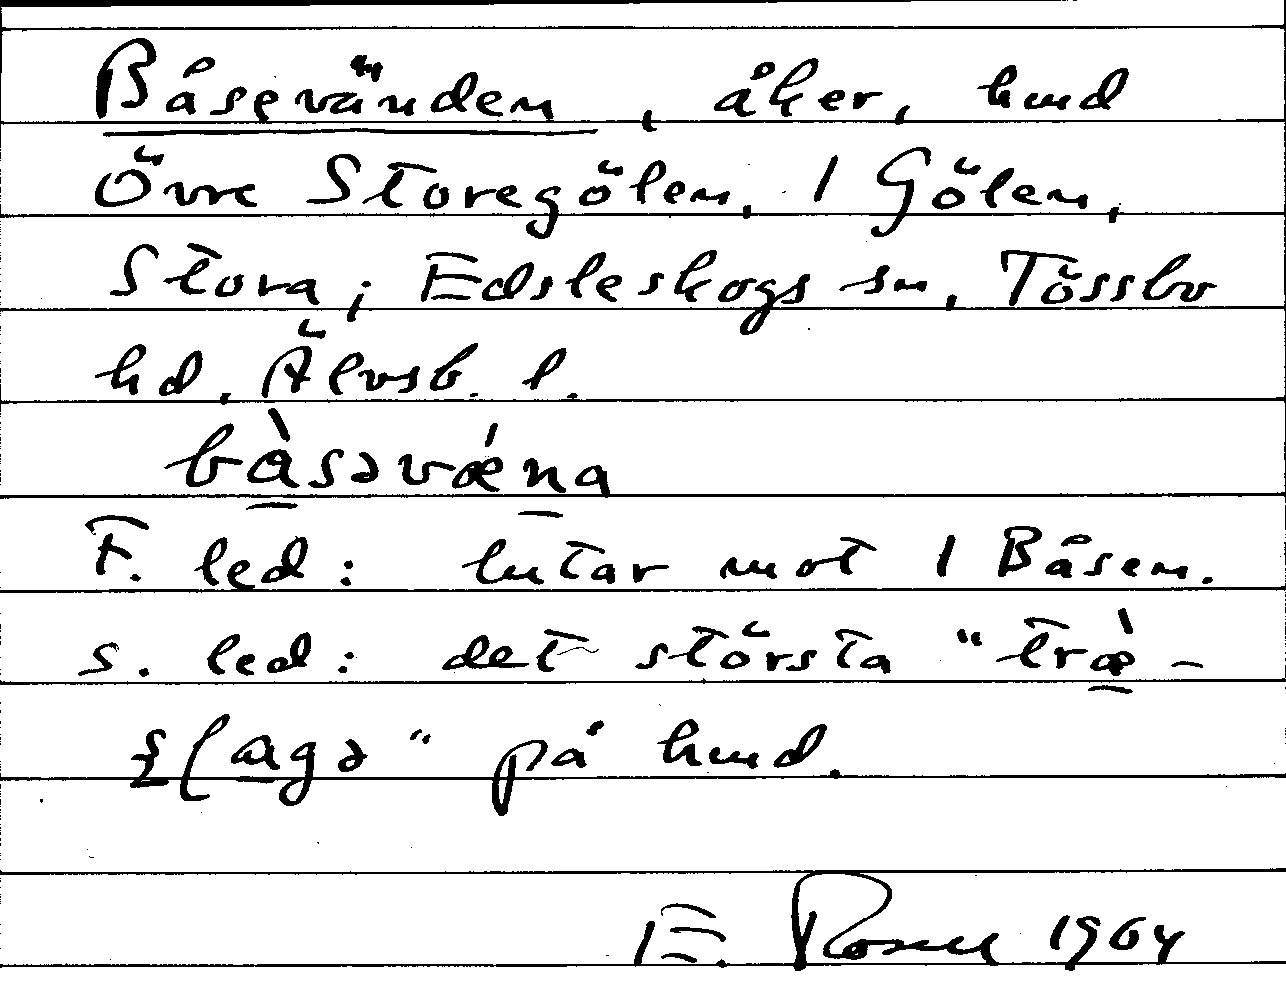 Båsevänden, åker, hmd
Övre Storegölen, 1 Gölen,
Stora; Edsleskogs sn, Tössbo
hd. Älvsb. l.
bàsəvǽna
F. led: lutar mot 1 Båsen.
s. led: det största "træ̀-
ʂɭagə" på hmd.
E. Rosell 1964